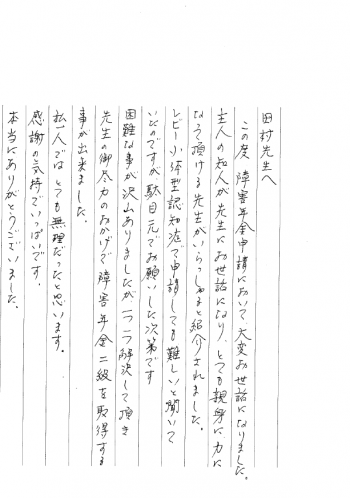 田村先生へ
この度 障害年金申請において大変お世話になりました。
主人の知人が先生にお世話になり、とても親身に力に
なって頂ける先生がいらっしゃると紹介されました。
レビー小体型認知症で申請しても難しいと聞いて
いたのですが駄目元でお願いした次第です
困難な事が沢山ありましたが一つ一つ解決して頂き
先生の御尽力のおかげで障害年金二級を取得する
事が出来ました。
私一人ではとても無理だったと思います。
感謝の気持でいっぱいです。
本当にありがとうございました。